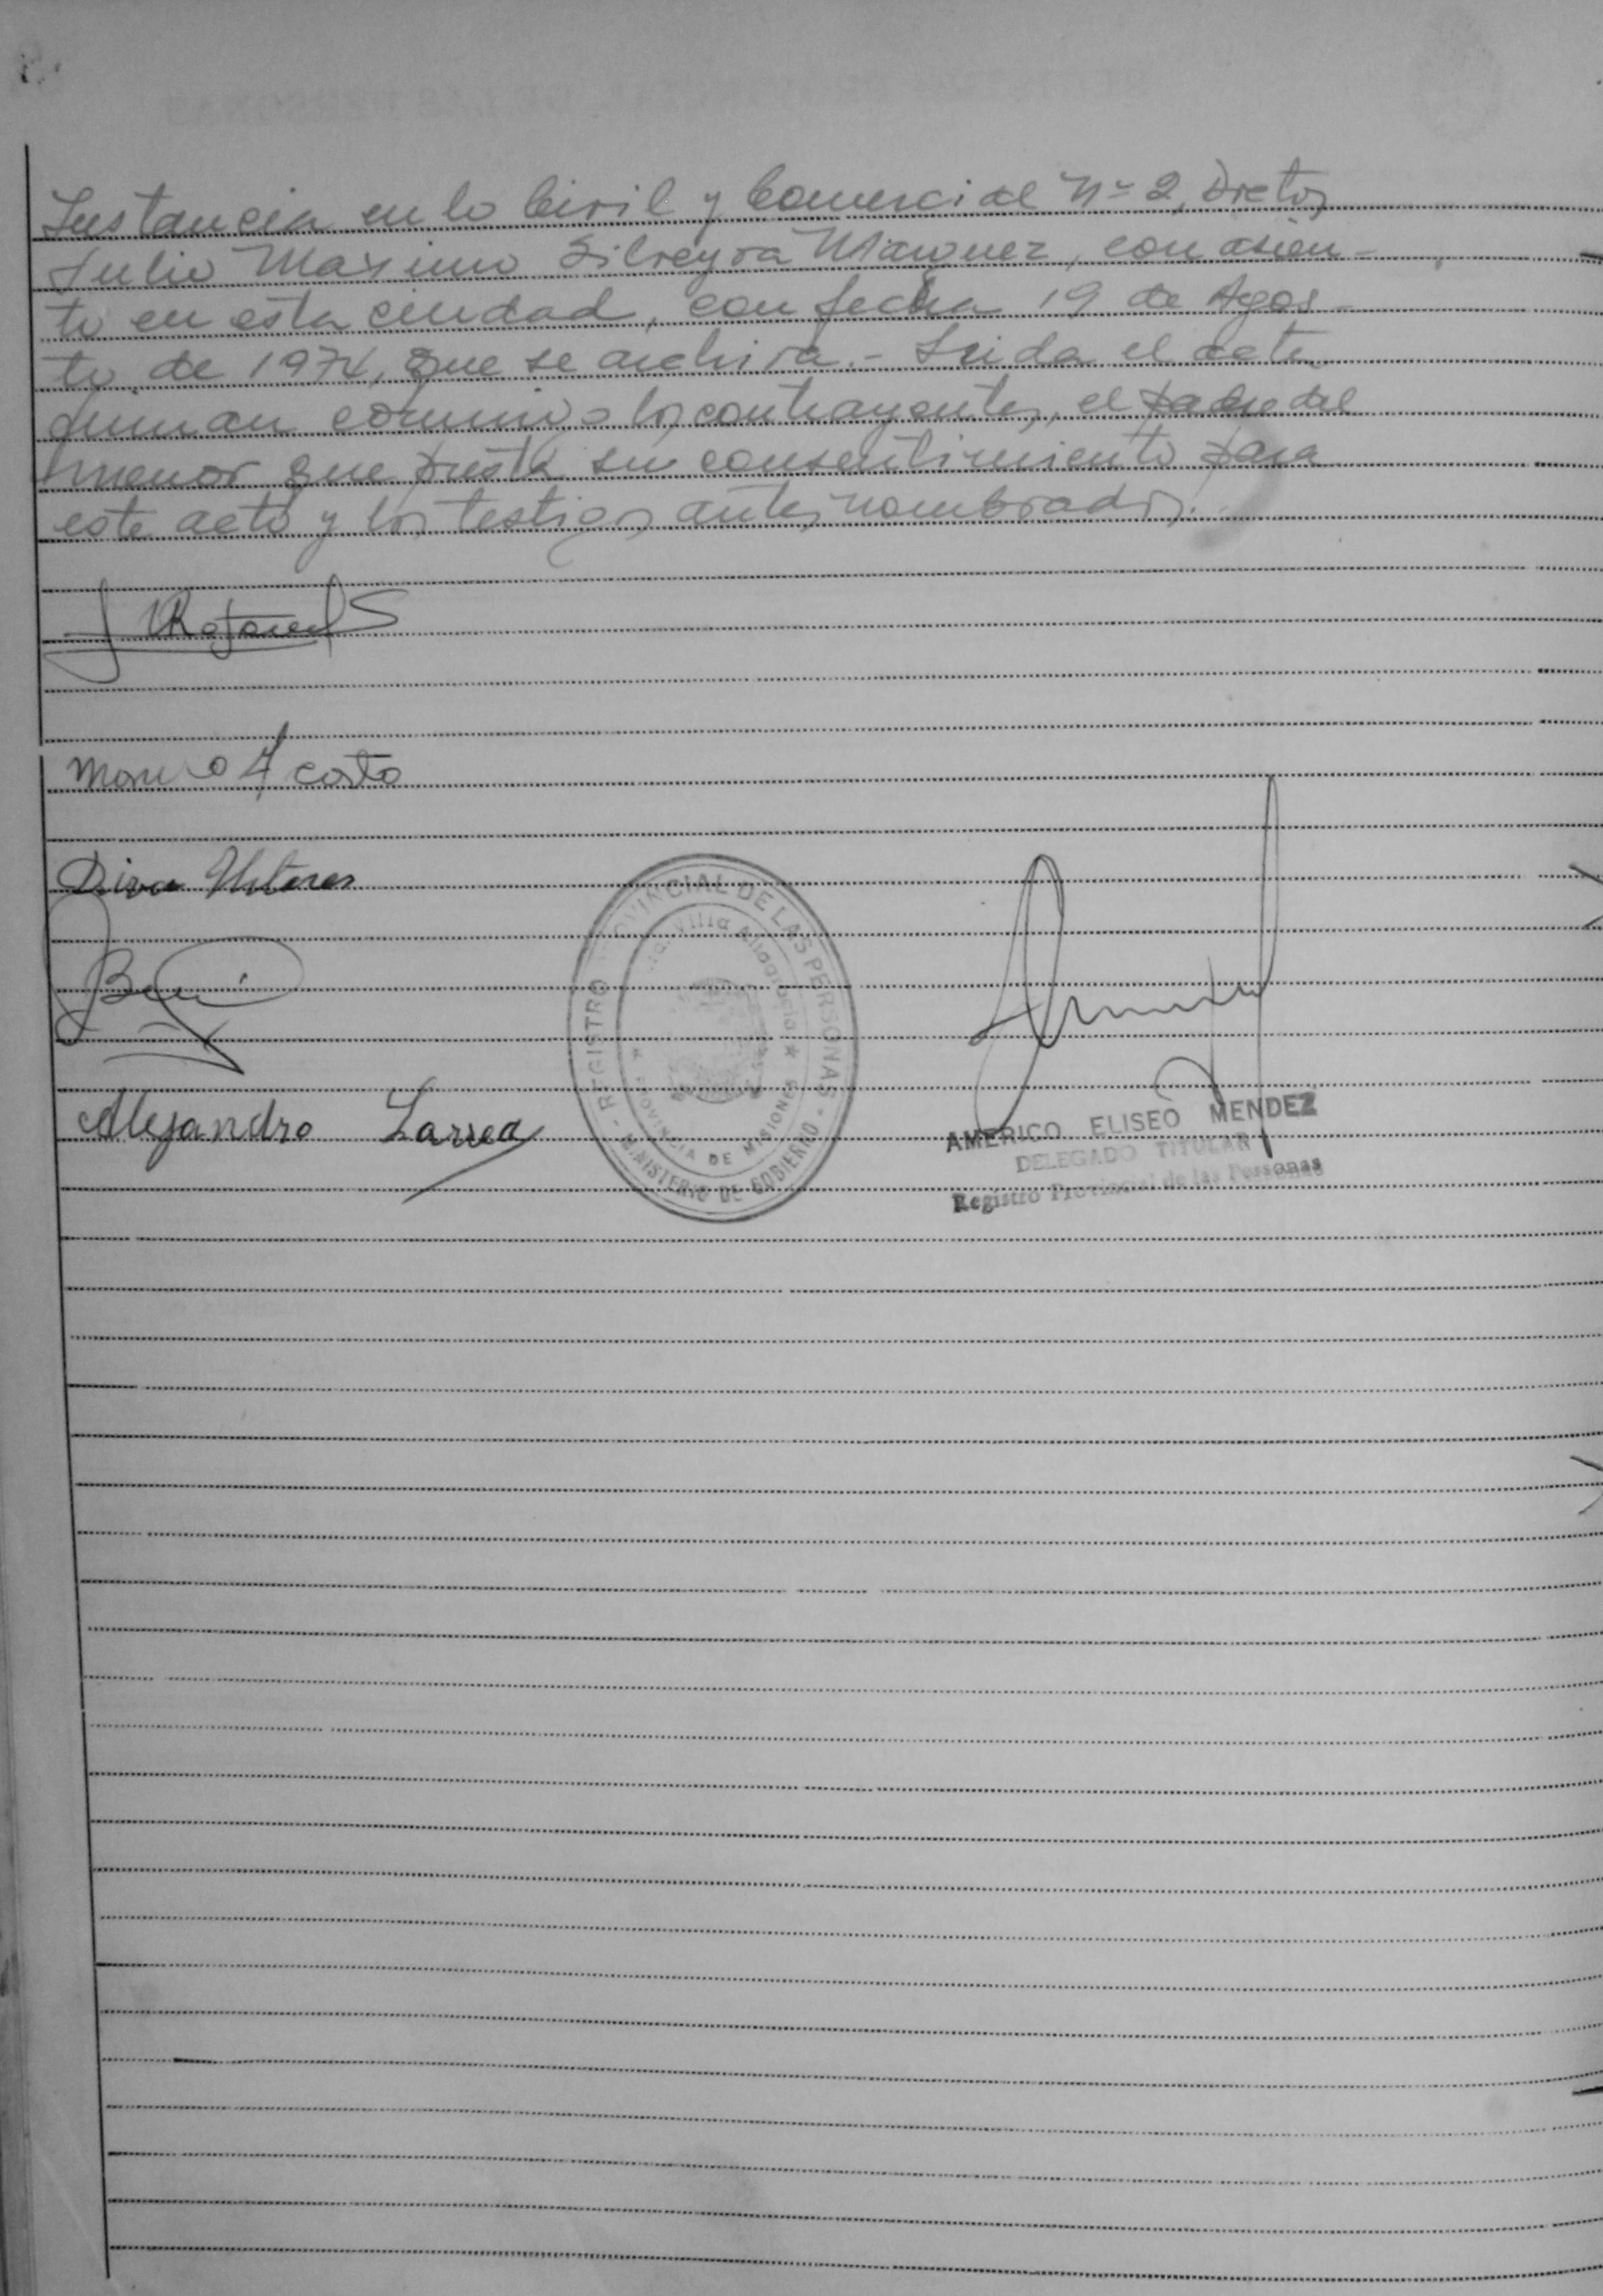 Instancia en lo Civil y Comercial Nº 2, Dretor
Julio Maximo Silveyra Marquez, con asien-
to en esta ciudad, con fecha 19 de Agos-
to de 1974, que se archiva.- Leida el acta
firman conmigo los contrayentes, el padre del
menor que presta su consentimiento para
este acto y los testigos antes nombrados.
Acosta
Alejandro Larrea
REGISTRO PROVINCIAL DE LAS PERSONAS - MINISTERIO DE GOBIERNO -
Villa
PROVINCIA DE MISIONES
AMERICO ELISEO MENDEZ
DELEGADO TITULAR
Registro Provincial de las Personas